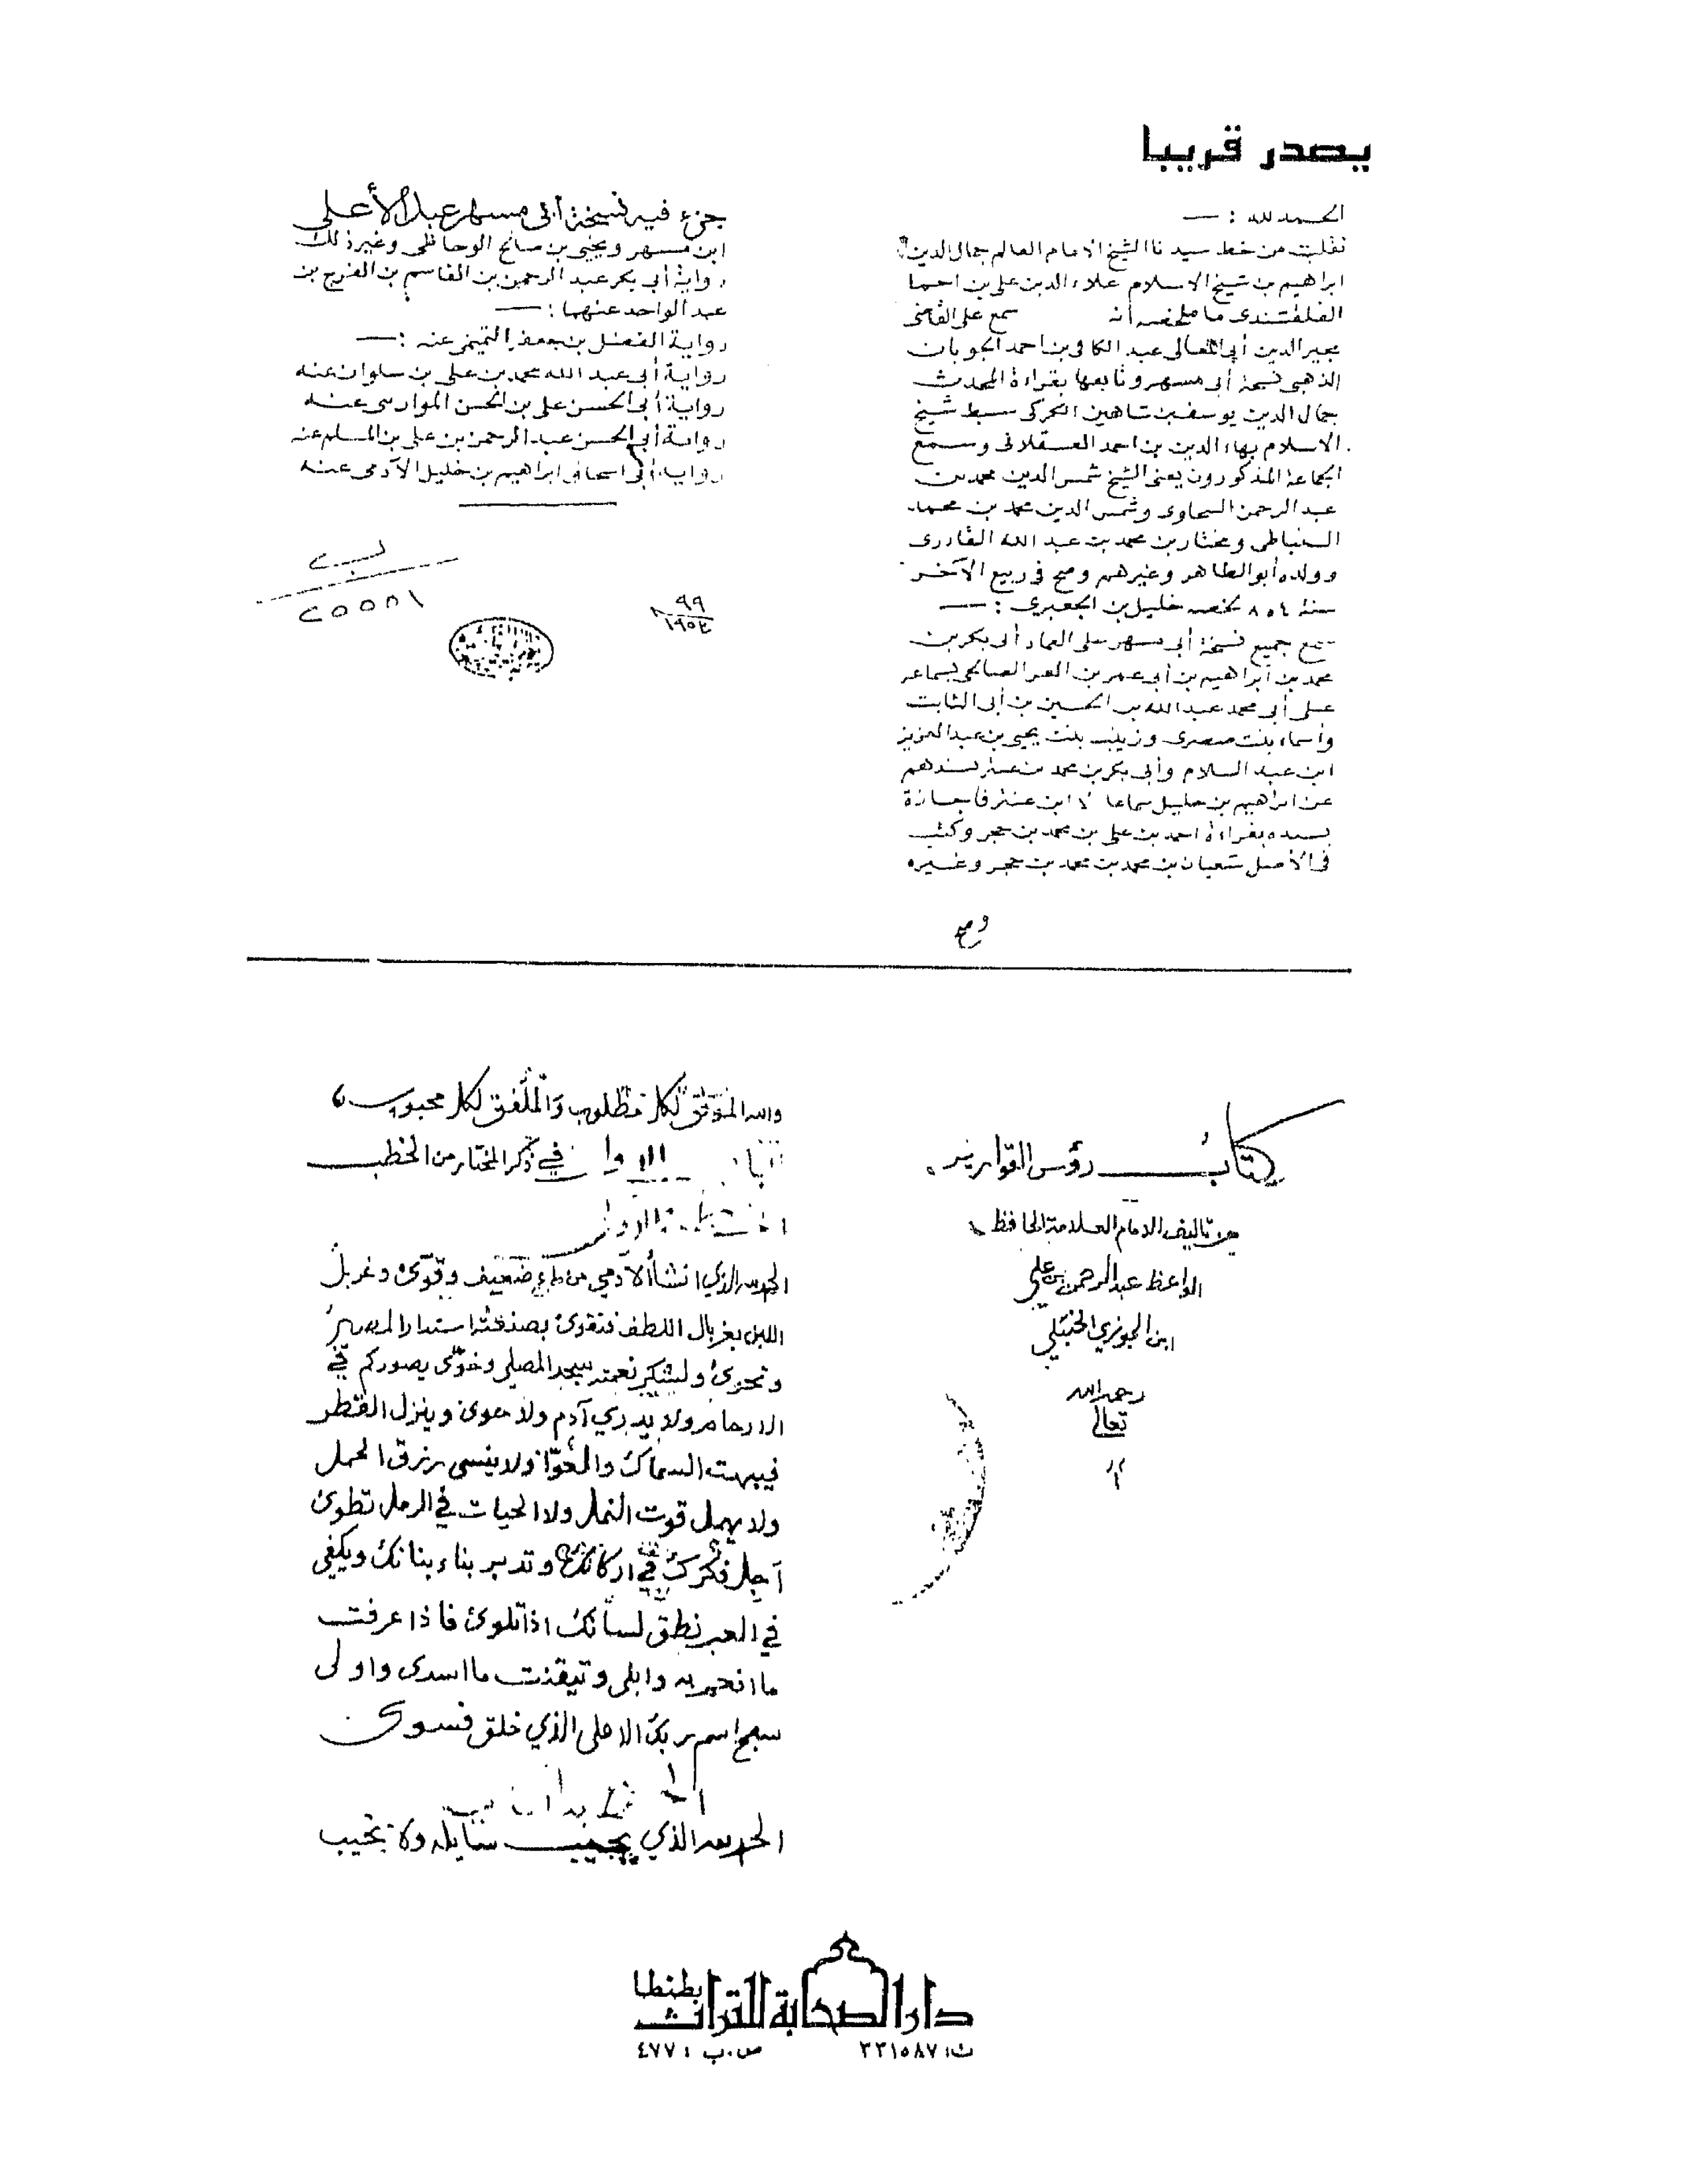 يصدر قريبا
الحمد لله : —
نقلت من خط سيدنا الشيخ الامام العالم جمال الدين
ابراهيم بن شيخ الاسلام علاء الدين علي بن احمد
القلقشندى ما ملخصه أنه سمع على القاضى
مجير الدين أبي المعالى عبد الكافى بن احمد الجوبان
الذهبى نسخة أبى مسهر وتابعها بقراءة المحدث
جمال الدين يوسف بن شاهين الكركى سبط شيخ
الاسلام بهاء الدين بن احمد العسقلانى وسمع
الجماعة المذكورون يعنى الشيخ شمس الدين محمد بن
عبد الرحمن السخاوى وشمس الدين محمد بن محمد
السنباطى ومختار بن محمد بن عبد الله القادرى
وولده أبو الطاهر وغيرهم وصح فى ربيع الآخر
سنة ٨٥٤ لخصه خليل بن الجعبرى : —
سمع جميع نسخة أبى مسهر على العماد أبى بكر بن
محمد بن ابراهيم بن أبى عمر بن العز الصالحى بسماعه
على أبى محمد عبد الله بن الحسين بن أبى الثابت
وأسماء بنت صصرى وزينب بنت يحيى بن عبد العزيز
ابن عبد السلام وأبى بكر بن محمد بن عنتر بسندهم
عن ابراهيم بن خليل سماعا لا ابن عنتر فاجازة
بسنده بقراءة احمد بن على بن محمد بن حجر وكتب
فى الأصل شعبان بن محمد بن محمد بن حجر وغيره
وصح
جزء فيه نسخة أبى مسهر عبد الأعلى
ابن مسهر ويحيى بن صالح الوحاظى وغير ذلك
رواية أبى بكر عبد الرحمن بن القاسم بن الفرج بن
عبد الواحد عنهما : —
رواية الفضل بن جعفر التميمى عنه : —
رواية أبى عبد الله محمد بن على بن سلوان عنه
رواية أبى الحسن على بن الحسن الموازينى عنه
رواية أبى الحسن عبد الرحمن بن على بن المسلم عنه
رواية أبى اسحاق ابراهيم بن خليل الآدمى عنه
ب
٢٥٥٥١
كتاب رؤس القوارير
من تاليف الامام العلامة الحافظ
الواعظ عبد الرحمن بن علي
ابن الجوزي الحنبلي
رحمه الله
تعالى
والله الموفق لكل مطلوب والملفق لكل محبوب
الباب الاول في ذكر المختار من الخطب
الخطبة الاولى
الحمد لله الذي انشأ الآدمي من ماء ضعيف وقوى وغربل
اللبن بغربال اللطف فتقوى بصنعته استدار المصير
وتحوى ولشكر نعمته سجد المصلي وخوى يصوركم في
الارحام ولا يدري آدم ولا حوى وينزل القطر
فيبهت السماك والعوا ولا ينسى رزق الحمل
ولا يهمل قوت النمل ولا الحيات في الرمل تطوى
آجل فكرك في اركانك وتدبر بناء بنانك ويكفي
في العبر نطق لسانك اذا تلوى فاذا عرفت
ما وابلى وتيقنت ما اسدى واولى
سبح اسم ربك الاعلى الذي خلق فسوى
الخطبة الثانية
الحمد لله الذي يجيب سايله ولا يخيب
دار الصحابة للتراث بطنطا
ت: ٣٣١٥٨٧ ص.ب : ٤٧٧